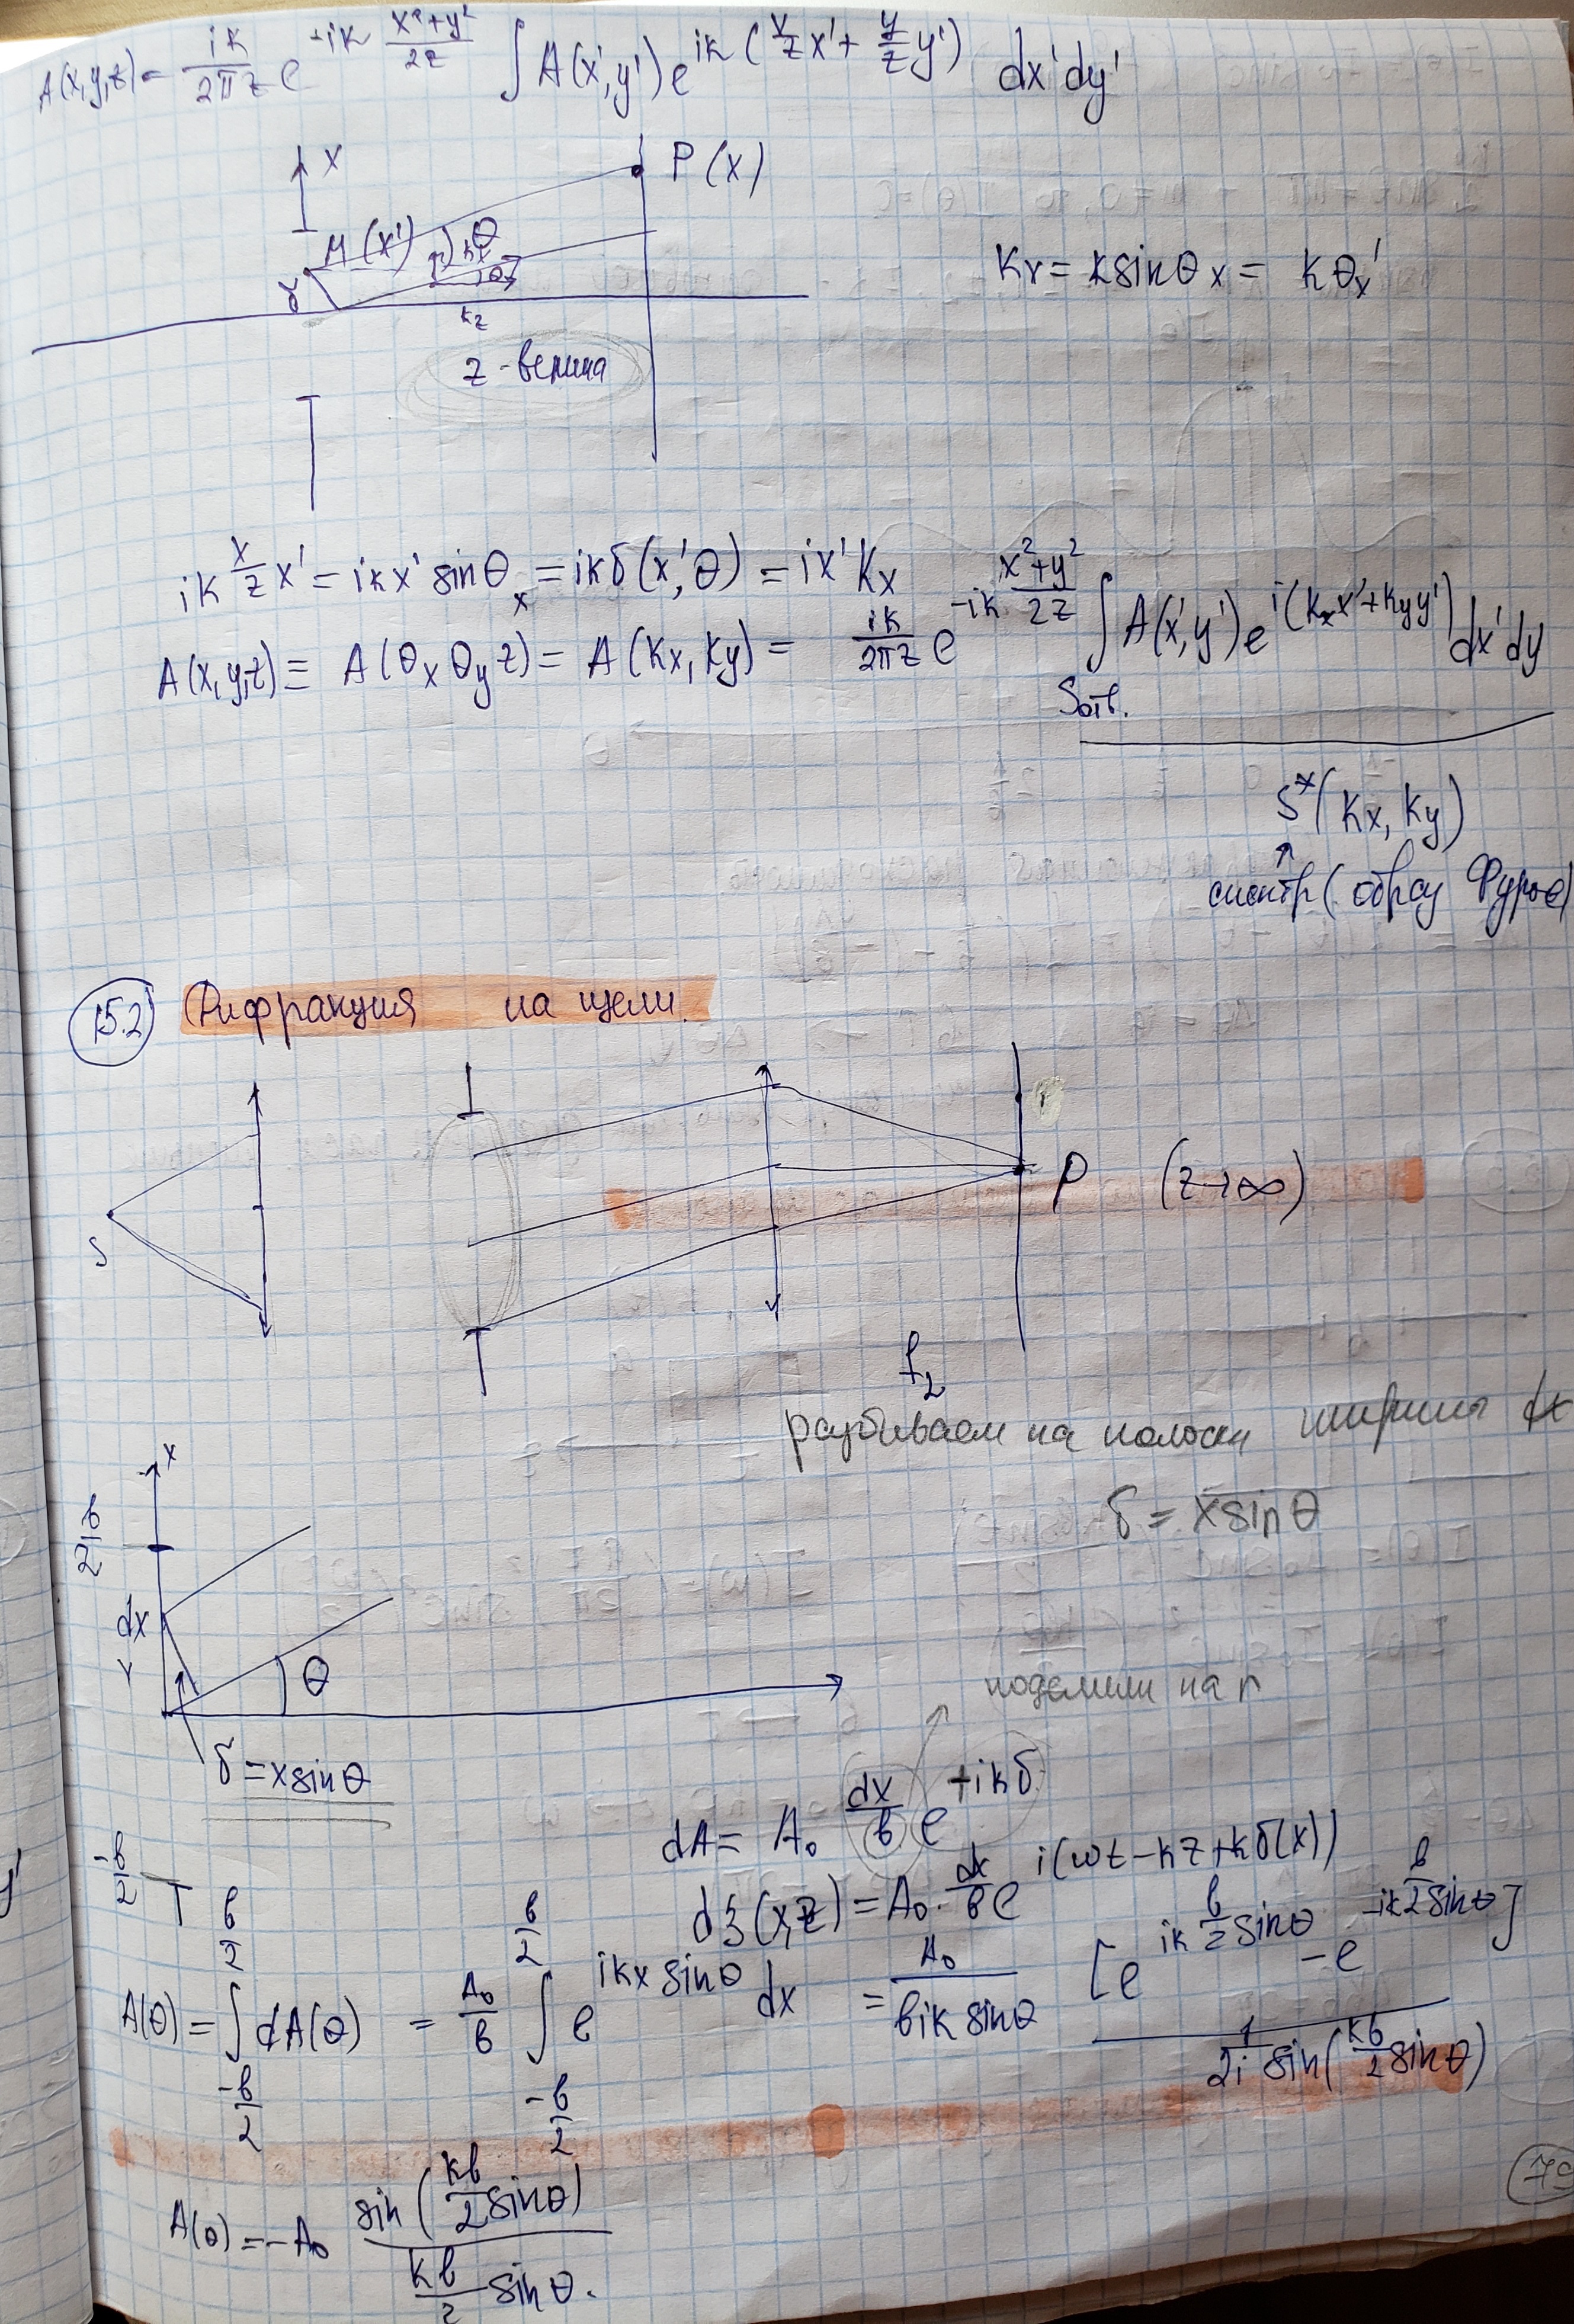 A(x,y,z) = \frac{ik}{2πz} e^{-ik \frac{x²+y²}{2z}} ∫ A(x',y') e^{ik(\frac{x}{z}x' + \frac{y}{z}y')} dx'dy'
x
P(x)
M(x')
θ
k_x
δ
k_z
K_x = k sinθ_x = kθ_x'
z - велика
ik \frac{x}{z} x' = ikx' sinθ_x = ikδ(x',θ) = ix'K_x
A(x,y,z) ≡ A(θ_x θ_y z) = A(K_x, K_y) = \frac{ik}{2πz} e^{-ik \frac{x²+y²}{2z}} ∫ A(x',y') e^{i(K_x x' + K_y y')} dx'dy
Sотв.
S*(K_x, K_y)
спектр (образ Фурье)
15.2 Дифракция на щели.
S
P (z→∞)
f_2
разбиваем на полоски ширины dx
x
\frac{b}{2}
δ = x sinθ
dx
θ
поделили на n
δ = x sinθ
dA = A_0 \frac{dx}{b} e^{+ikδ}
-\frac{b}{2}
dξ(x,z) = A_0 · \frac{dx}{b} e^{i(ωt - kz + kδ(x))}
A(θ) = ∫_{-\frac{b}{2}}^{\frac{b}{2}} dA(θ) = \frac{A_0}{b} ∫_{-\frac{b}{2}}^{\frac{b}{2}} e^{ikx sinθ} dx = \frac{A_0}{bik sinθ} [e^{ik\frac{b}{2} sinθ} - e^{-ik\frac{b}{2} sinθ}]
\frac{1}{2i} sin(\frac{kb}{2} sinθ)
A(θ) = -A_0 \frac{sin(\frac{kb}{2} sinθ)}{\frac{kb}{2} sinθ}.